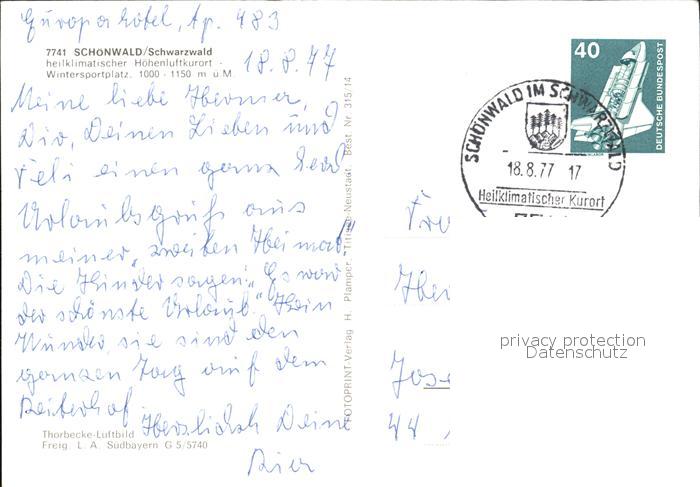 Europahotel, Ap. 483
7741 SCHONWALD/Schwarzwald
heilklimatischer Höhenluftkurort -
Wintersportplatz. 1000 - 1150 m ü.M.
18.8.77
Meine liebe
Dir, Deinen Lieben und
einen ganz
Urlaubsgruß aus
meiner „zweiten Heimat"
Die Kinder sagen: „Es war
der schönste Urlaub". Kein
Wunder, sie sind den
ganzen Tag auf dem
Reiterhof.
Herzlichst Deine
Thorbecke-Luftbild
Freig. L. A. Südbayern G 5/5740
FOTOPRINT-Verlag H. Plamper, Titisee-Neustadt Best. Nr. 315/14
40
DEUTSCHE BUNDESPOST
SCHÖNWALD IM SCHWARZWALD
18.8.77 17
Heilklimatischer Kurort
44
privacy protection
Datenschutz